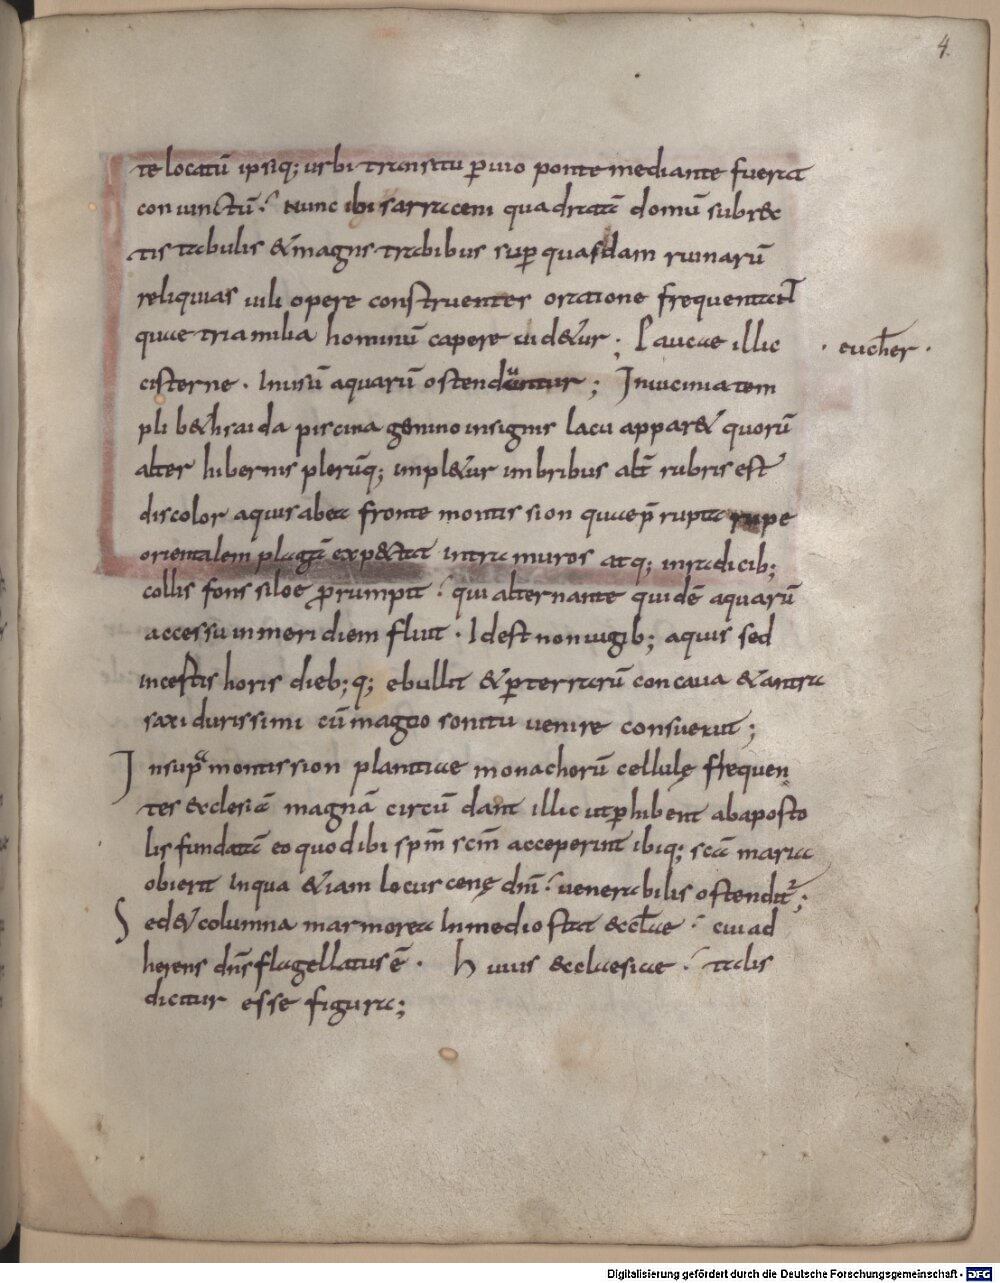 4.
te locatū ipsiq; urbi transitu ꝑuio ponte mediante fuerat
coniunctū. Nunc ibi sarraceni quadratā domū subrec
tis tabulis & magnis trabibus suꝑ quasdam ruinarū
reliquias uili opere construentes oratione frequentant
quae tria milia hominū capere uid&ur; Paucae illic · eucher ·
cisterne. In usū aquarū ostenduntur; In uicinia tem
pli b&hsaida piscina gemino insignis lacu appar& quorū
alter hibernis plerūq; impl&ur imbribus alt̄ rubris est
discolor aquis ab ea fronte montis sion quae p̄rupta rupe
orientalem plagā exp&tat intra muros atq; in radicib;
collis fons siloe ꝓrumpit qui alternante quidē aquarū
accessu in meridiem fluit. Id est non iugib; aquis sed
incertis horis dieb;q; ebullit & ꝑ terrarū concaua & antra
saxi durissimi cū magno sonitu uenire consueuit;
In supra montis sion planitiae monachorū cellulę frequen
tes ecclesiā magnā circūdant illic ut ꝑhibent ab aposto
lis fundatā eo quod ibi spm̄ scm̄ acceperint ibiq; scā maria
obierit In qua &iam locus cenę dn̄i uenerabilis ostendit;
Sed & columna marmorea In medio stat eccl̄ae cui ad
herens dn̄s flagellatus ē. Huius &cclaesiae talis
dicitur esse figura;
Digitalisierung gefördert durch die Deutsche Forschungsgemeinschaft - DFG